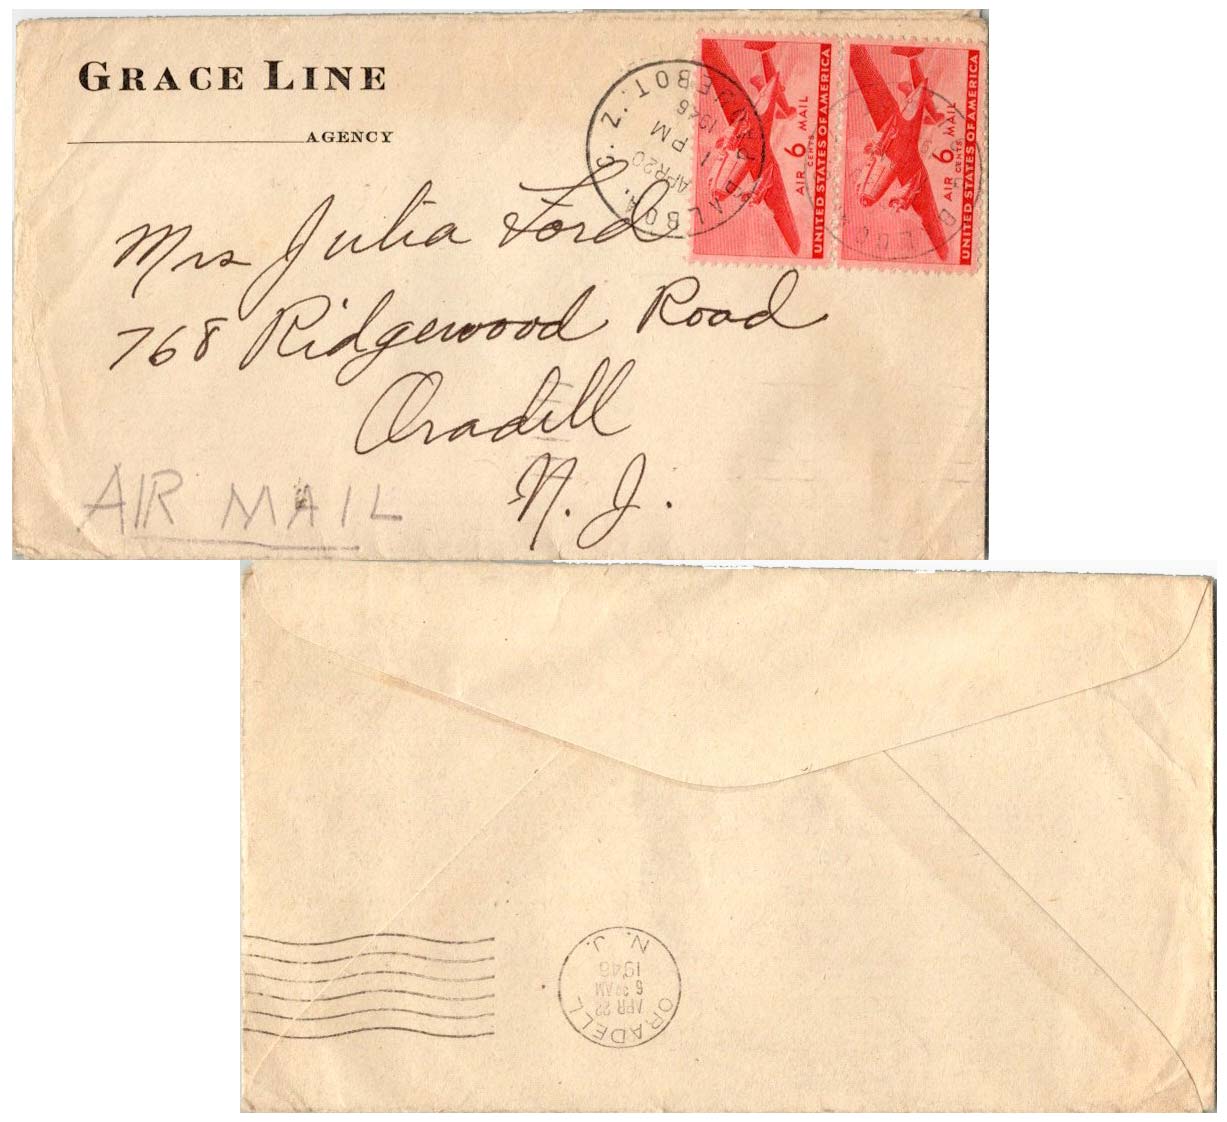 GRACE LINE
AGENCY
BALBOA. C. Z.
APR 20
1 PM
1946
AIR 6 CENTS MAIL
UNITED STATES OF AMERICA
AIR 6 CENTS MAIL
UNITED STATES OF AMERICA
Mrs Julia Ford
768 Ridgewood Road
Oradill
N. J.
AIR MAIL
ORADELL
APR 22
1946
N. J.